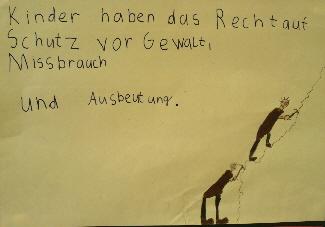 Kinder haben das Recht auf
Schutz vor Gewalt,
Missbrauch
und Ausbeutung.